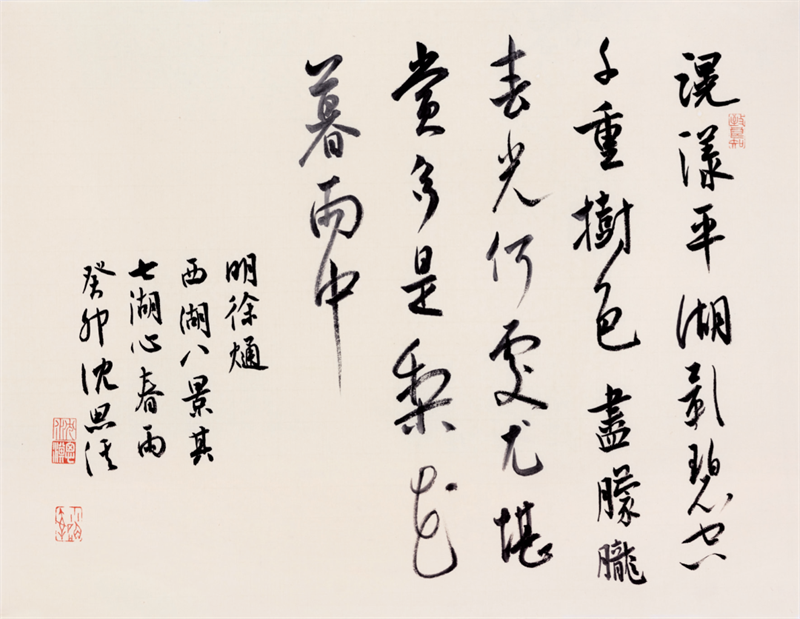 滉漾平湖影碧空
千重樹色盡朦朧
春光何處尤堪
賞多是梨花
暮雨中
明徐𤊹
西湖八景其
七湖心春雨
癸卯沈思